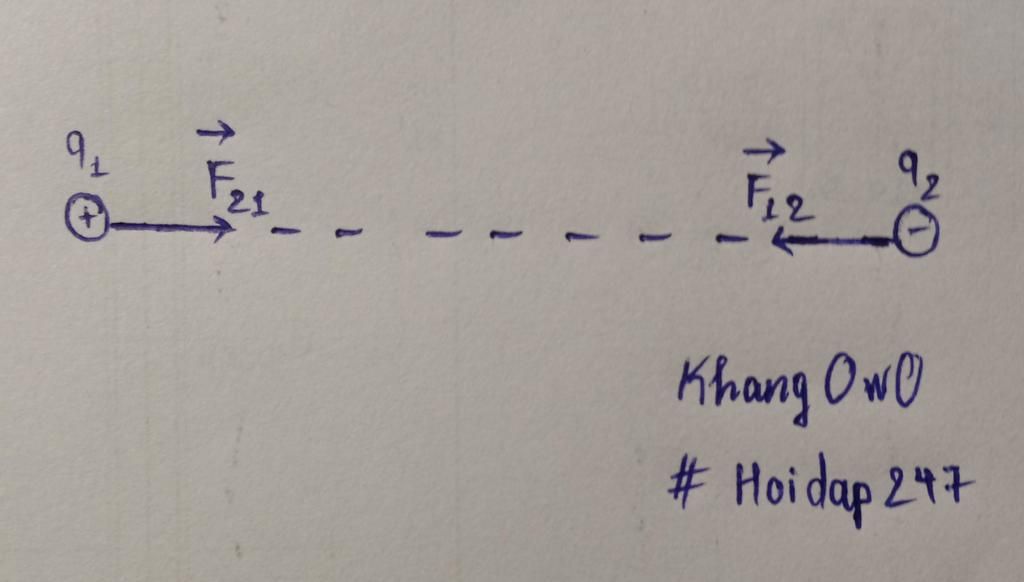 q₁ F₂₁ F₁₂ q₂
+ -
Khang OwO
# Hoidap 247